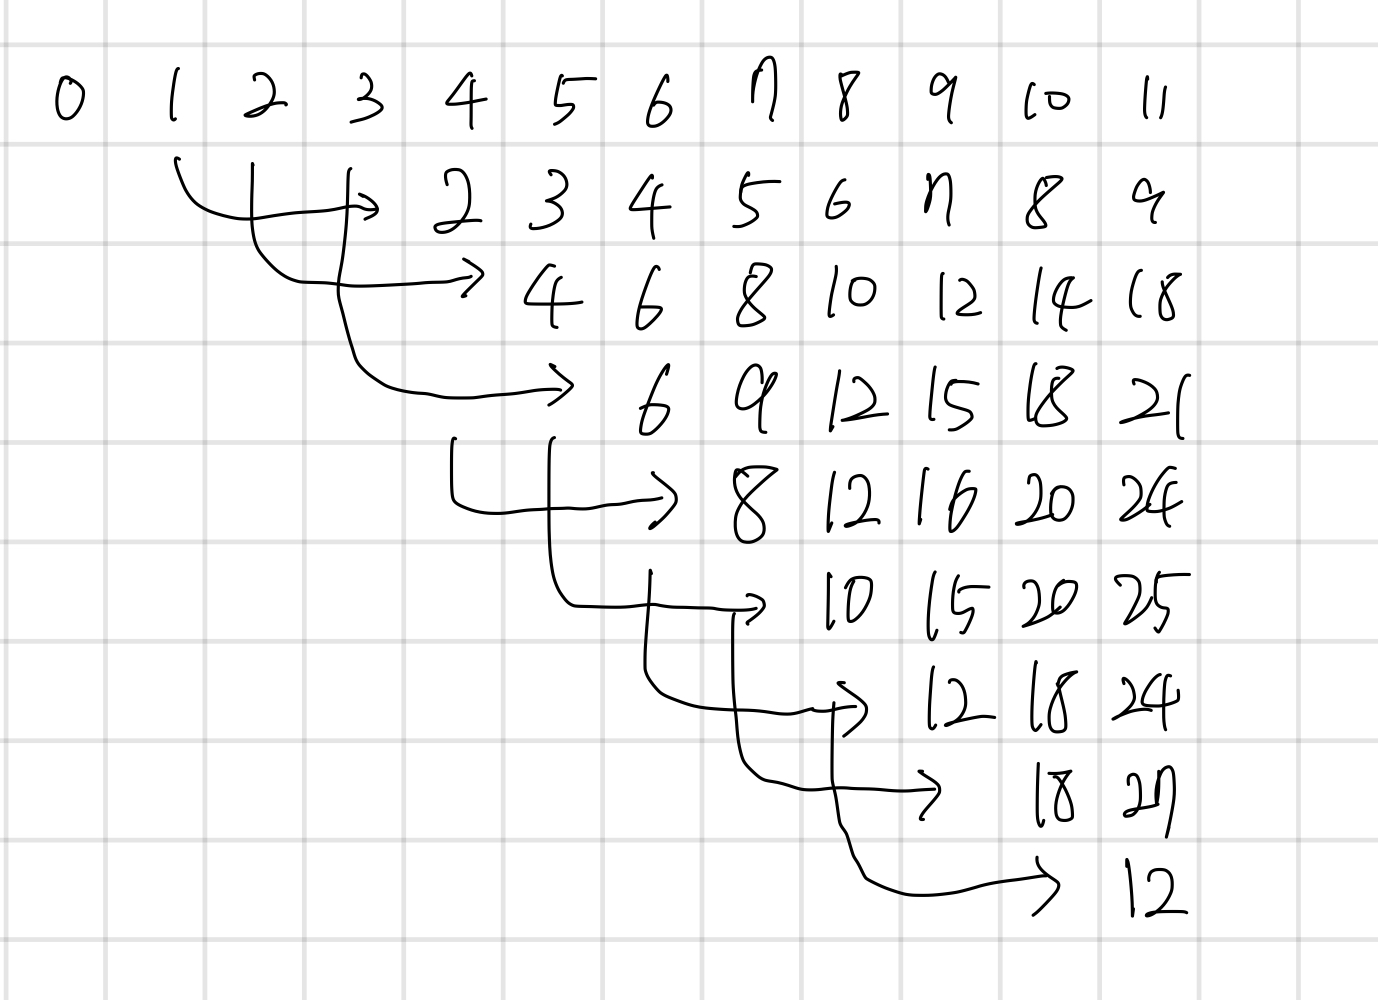 0 1 2 3 4 5 6 7 8 9 10 11
2 3 4 5 6 7 8 9
4 6 8 10 12 14 18
6 9 12 15 18 21
8 12 16 20 24
10 15 20 25
12 18 24
18 27
12